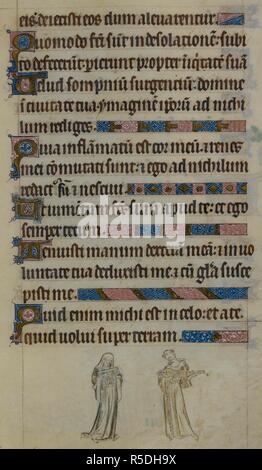 eis deiecisti eos dum alleuarentur.
Quomodo fc̄i sūt in desolationē: subi
to defecerūt: pierunt propter īiq̄tatē suā
Uelud sompniū surgencium: domine
in ciuitate tua ymaginē ip̄oꝝ ad nichi
lum rediges.
Quia inflāmatū est cor meū: ⁊ renes
mei cōmutati sunt: ⁊ ego ad nichilum
redactꝰ sū ⁊ nesciui.
Ut iumentū fc̄s sum apud te: et ego
semper tecum.
Tenuisti manum dexterā meā: ⁊ in uo
luntate tua deduxisti me: ⁊ cū gl̄a susce
pisti me.
Quid enim michi est in celo: et a te
quid uolui super terram.